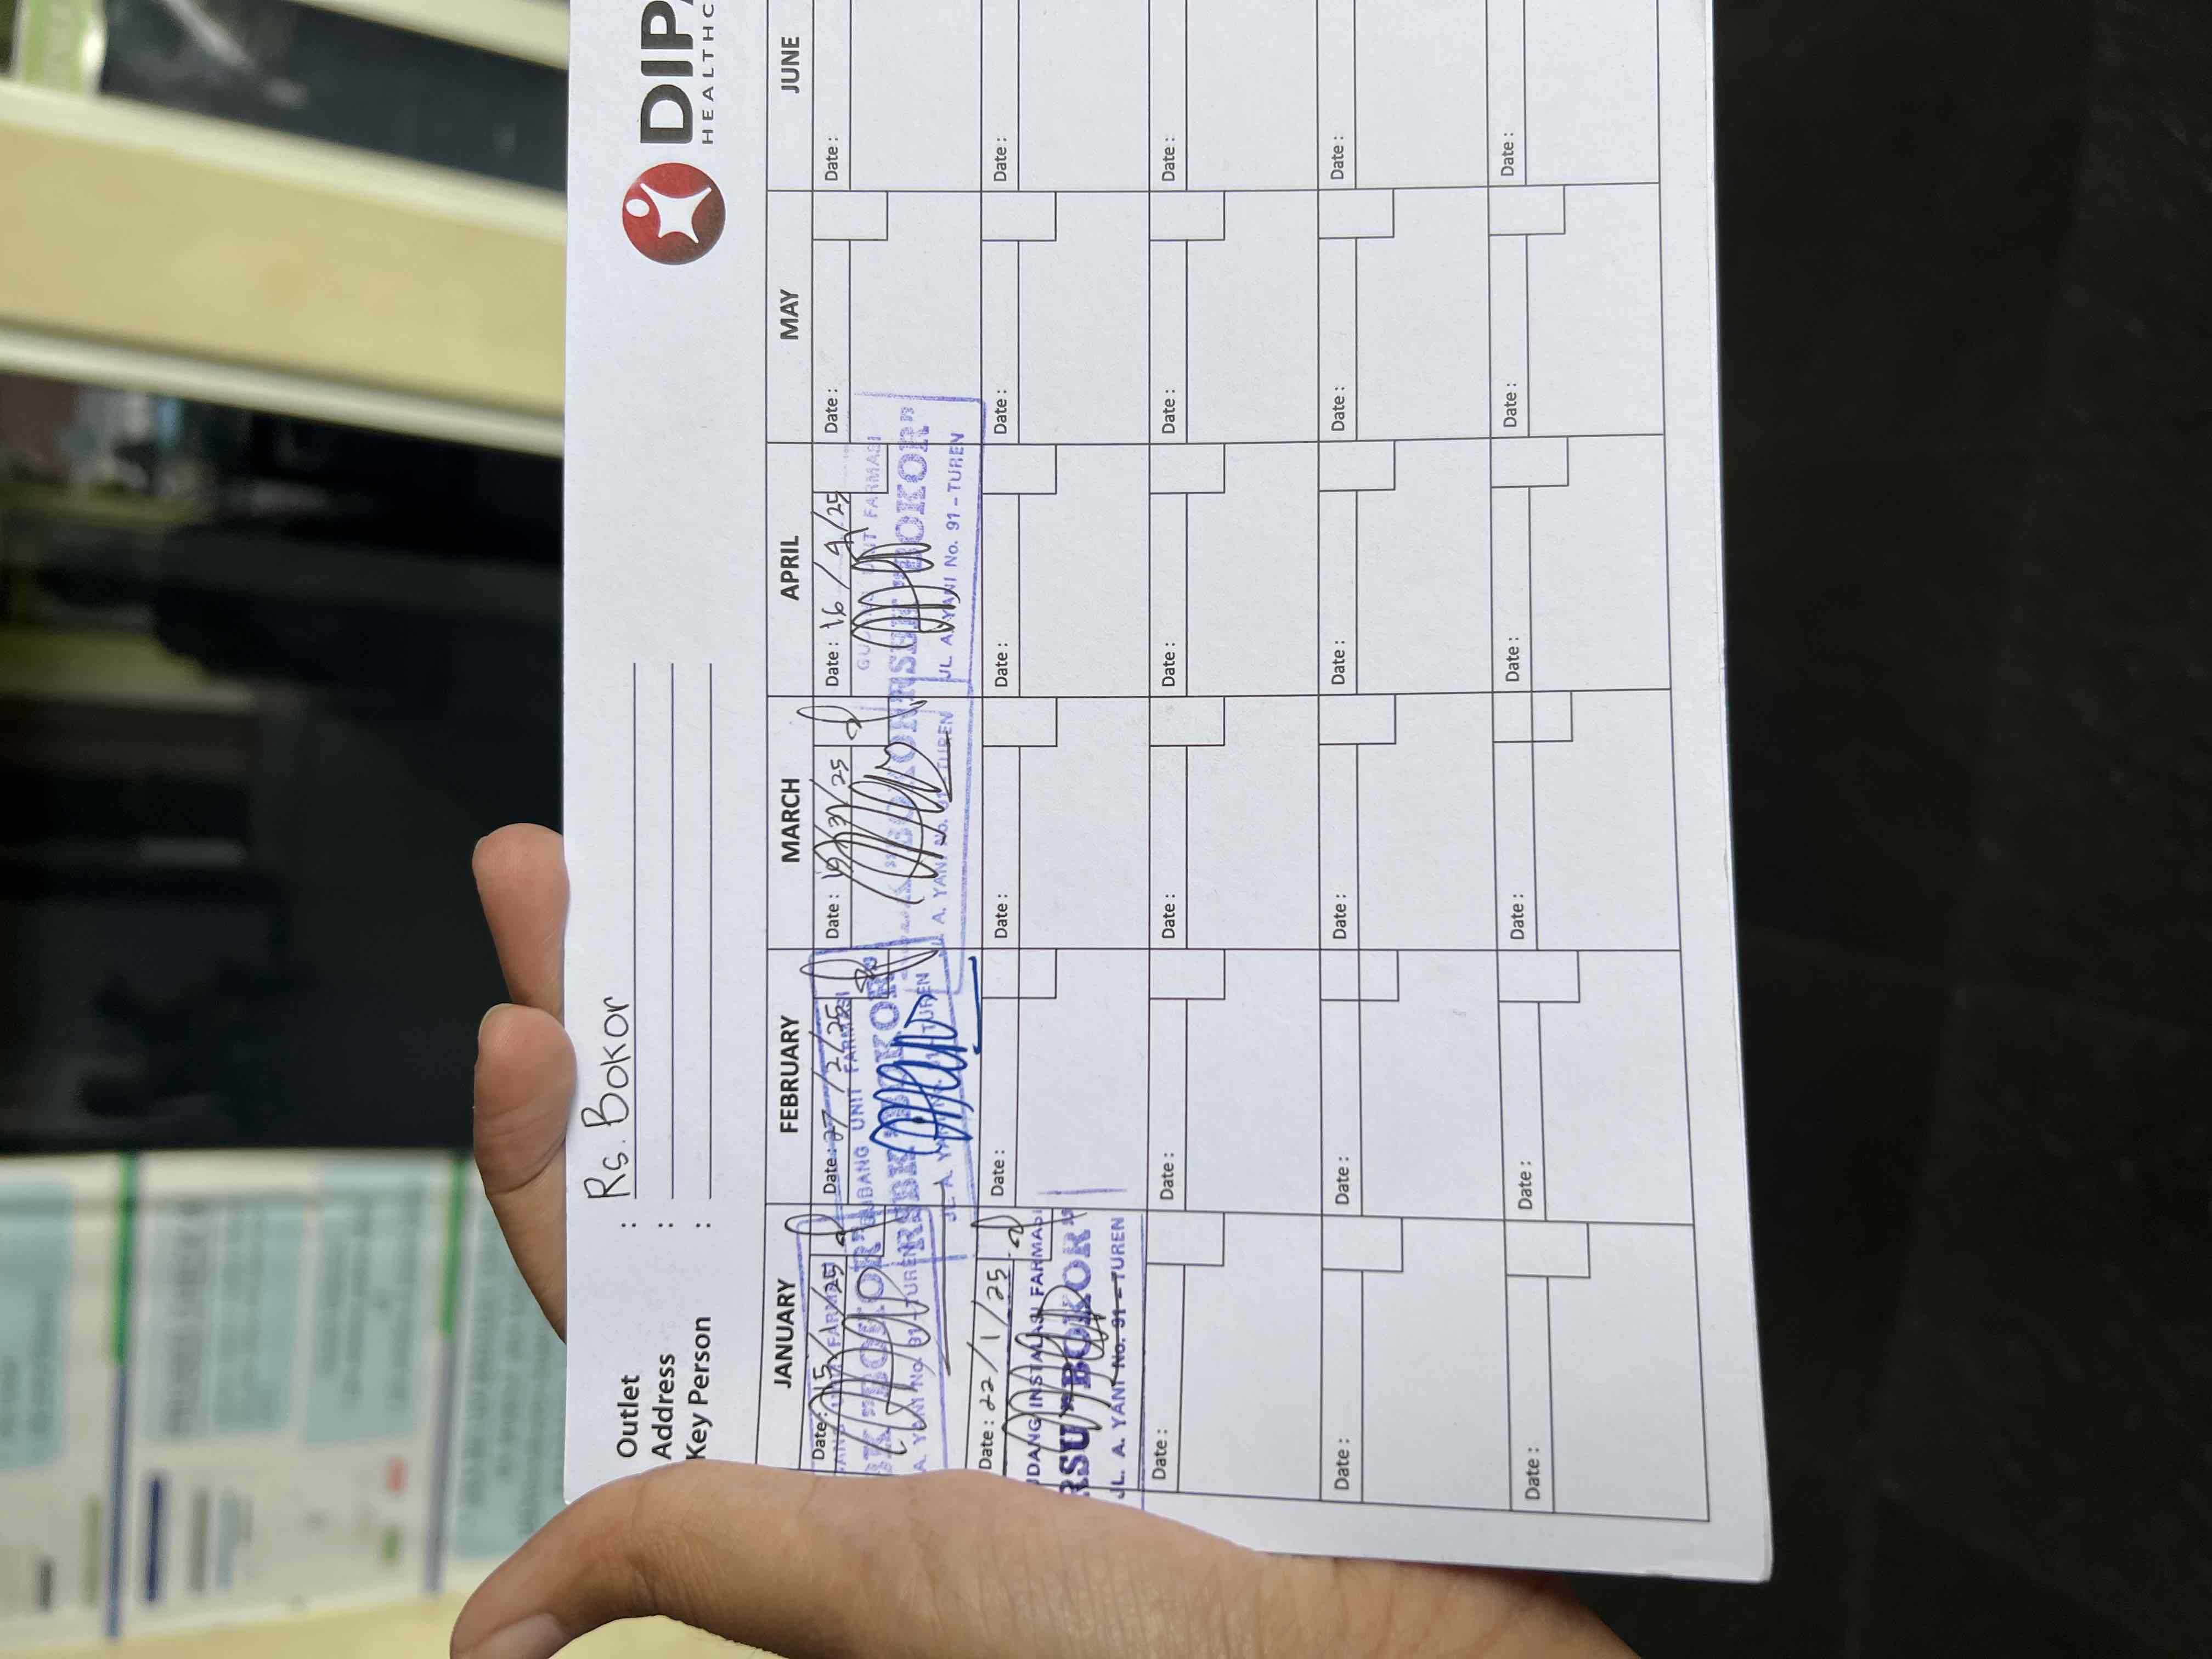 DIPA
HEALTHC
Outlet : Rs. Bokor
Address :
Key Person :
JANUARY FEBRUARY MARCH APRIL MAY JUNE
Date: 15/1/25 Date: 27/2/25 Date: 19/3/25 Date: 16/4/25 Date: Date:
UNIT FARMASI
"BOKOR"
JL. A. YANI No. 91 - TUREN
Date: 22/1/25 Date: Date: Date: Date: Date:
UDANG INSTALASI FARMASI
RSU "BOKOR"
JL. A. YANI No. 91 - TUREN
Date: Date: Date: Date: Date: Date:
Date: Date: Date: Date: Date: Date:
Date: Date: Date: Date: Date: Date: